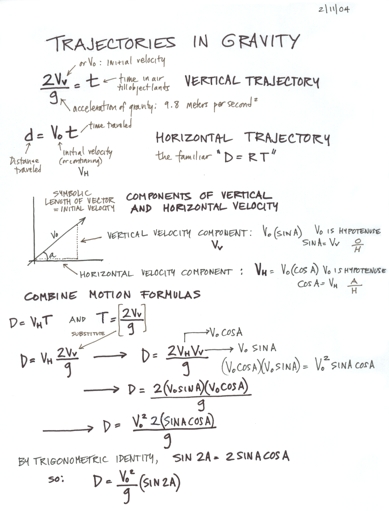 2/11/04
TRAJECTORIES IN GRAVITY
or V₀: initial velocity
2Vv/g = t ← time in air till object lands VERTICAL TRAJECTORY
acceleration of gravity: 9.8 meters per second²
d = V₀t ← time traveled HORIZONTAL TRAJECTORY
Distance traveled initial velocity (or continuing) VH the familiar "D = RT"
SYMBOLIC LENGTH OF VECTOR = INITIAL VELOCITY
COMPONENTS OF VERTICAL AND HORIZONTAL VELOCITY
V₀
a
VERTICAL VELOCITY COMPONENT: V₀(SIN A) V₀ IS HYPOTENUSE
Vv SIN A = Vv O/H
HORIZONTAL VELOCITY COMPONENT: VH = V₀(COS A) V₀ IS HYPOTENUSE
COS A = VH A/H
COMBINE MOTION FORMULAS
D = VHT AND T = [2Vv/g]
SUBSTITUTE
→ V₀ COS A
D = VH 2Vv/g → D = 2VHVv/g → V₀ SIN A
(V₀COSA)(V₀SINA) = V₀² SINA COSA
→ D = 2(V₀SINA)(V₀COSA)/g
→ D = V₀² 2(SINACOSA)/g
BY TRIGONOMETRIC IDENTITY, SIN 2A = 2 SINA COSA
SO: D = V₀²/g (SIN 2A)